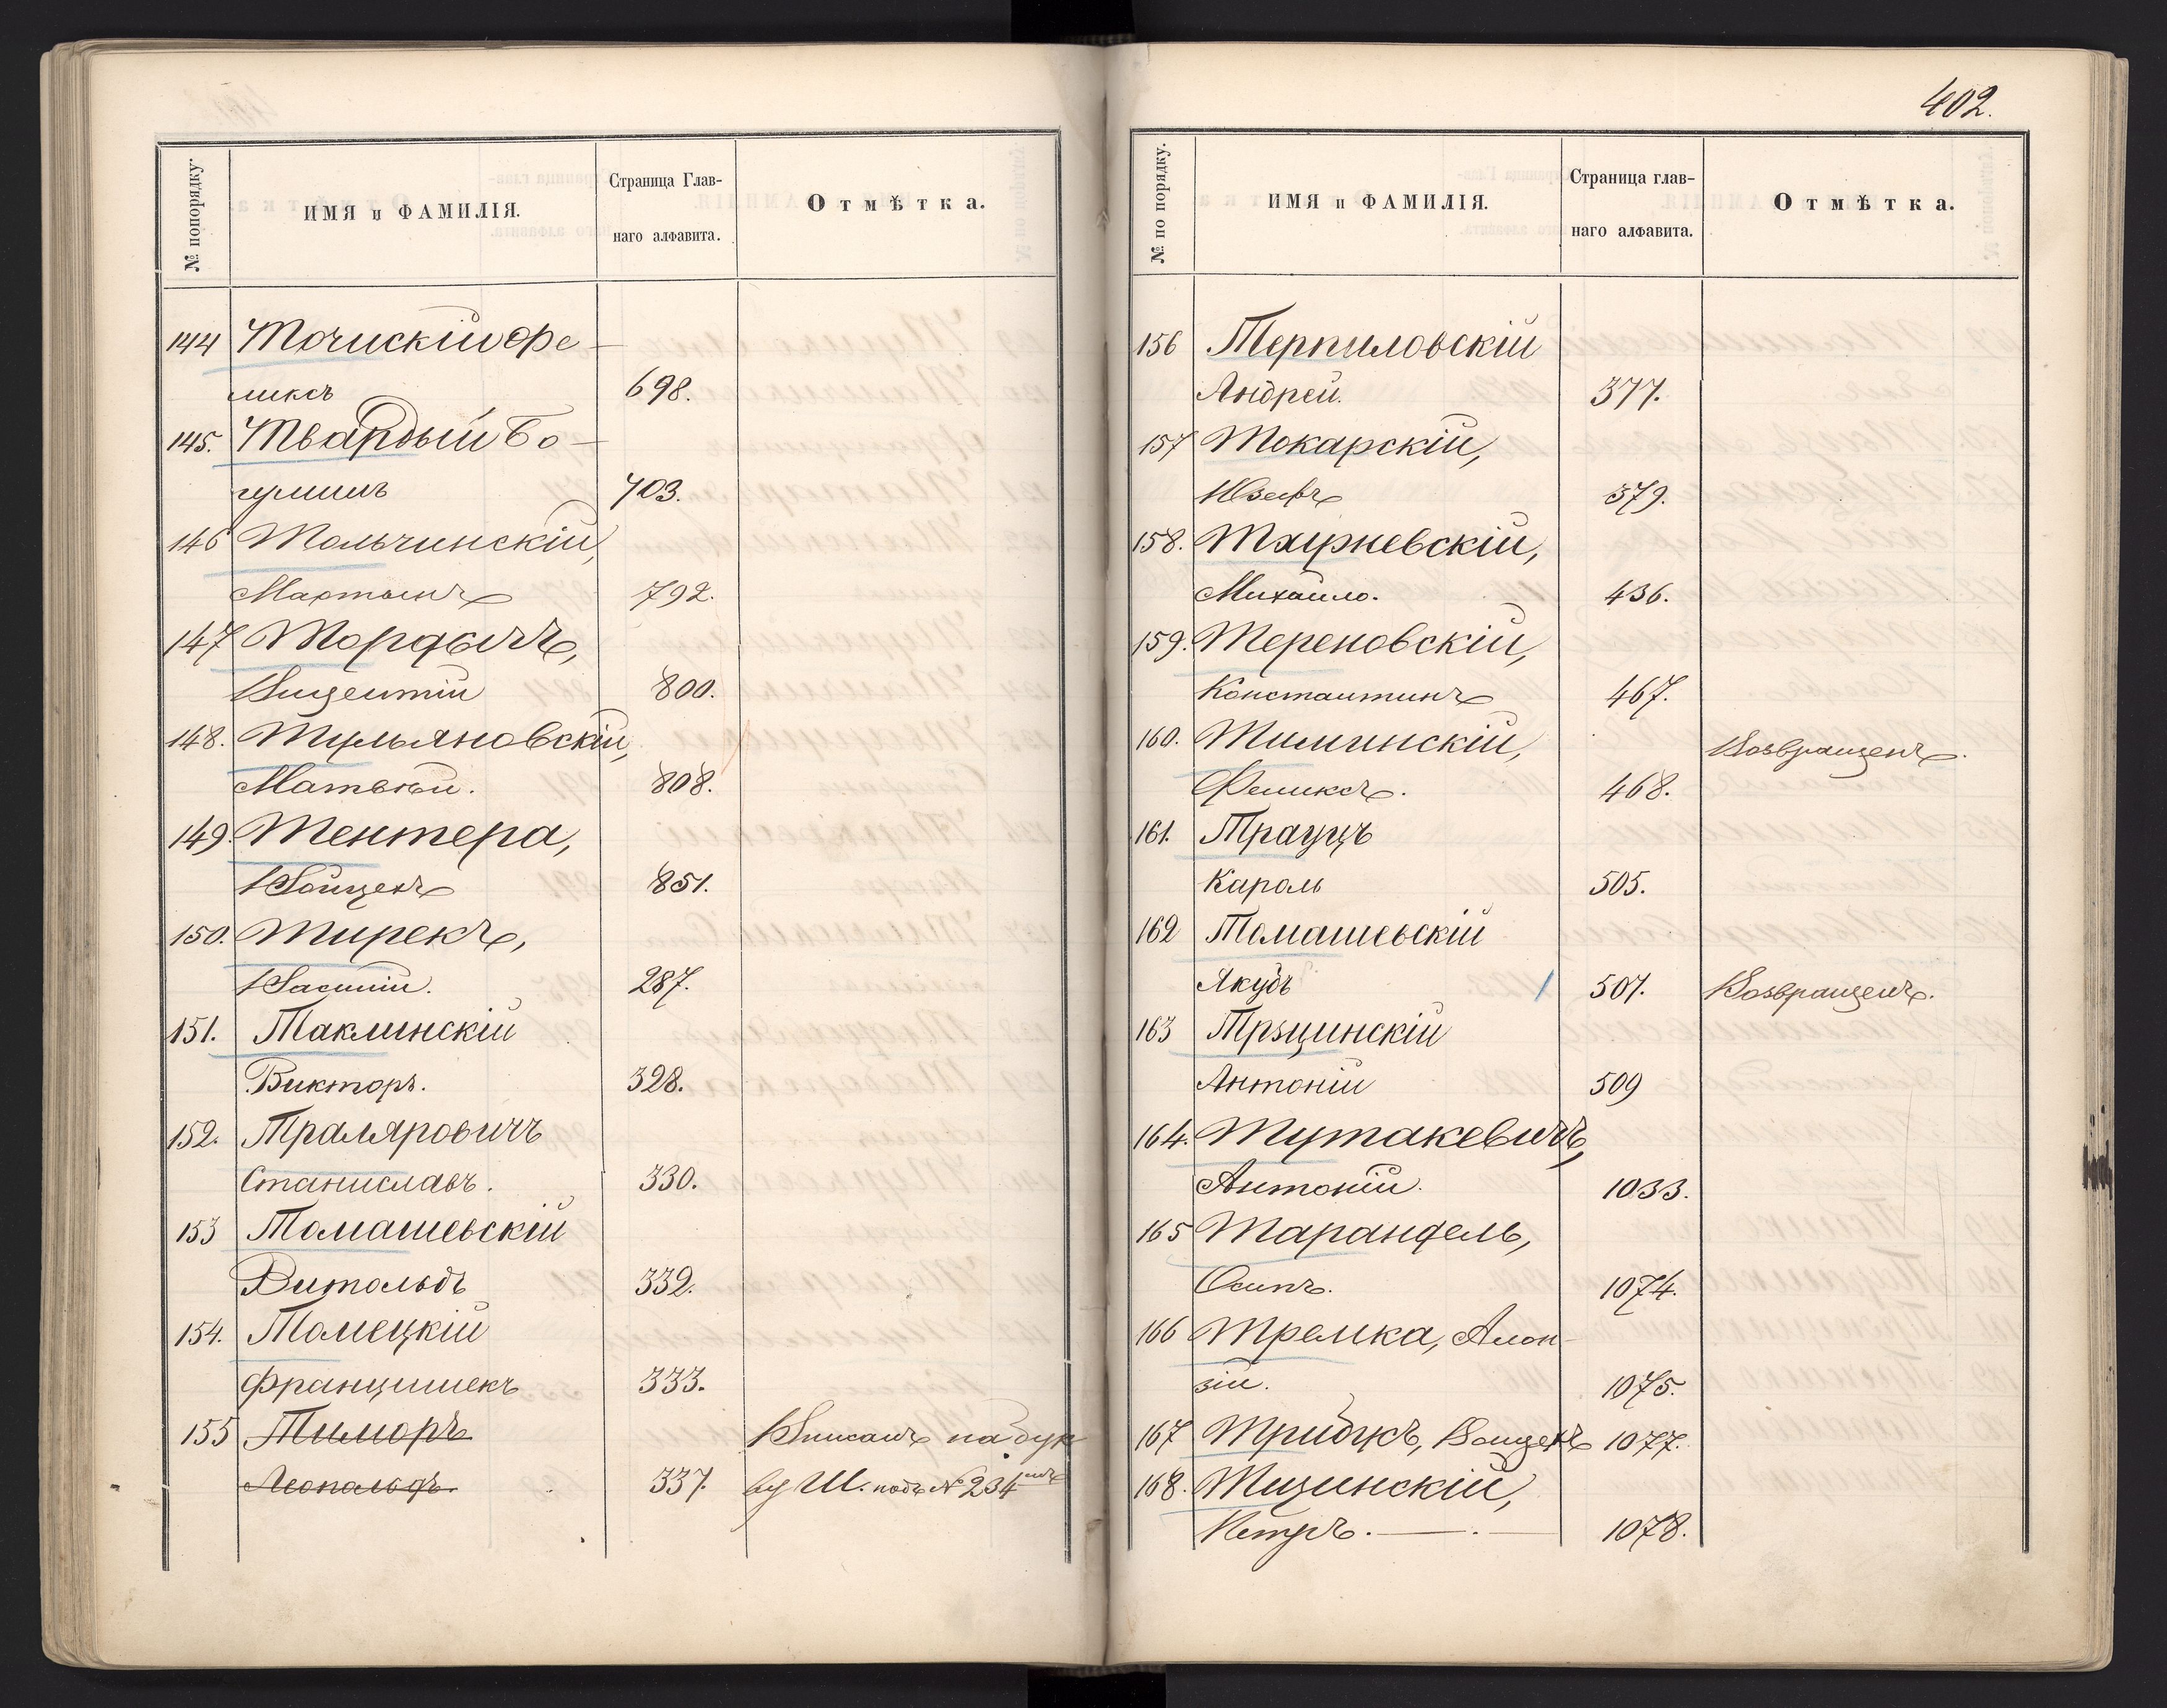 402.
№ попорядку.
ИМЯ и ФАМИЛІЯ.
Страница Глав-
наго алфавита.
Отмѣтка.
144 Точискій Фе-
ликсъ 698.
145. Твардый Бо-
гумилъ 703.
146 Тольчинскій,
Мартынъ 792.
147 Тордвичъ,
Вицентій 800.
148. Тульяновскій,
Матвѣй. 808.
149. Тентера,
Войцехъ 851.
150. Тирекъ,
Василій. 287.
151. Таклинскій
Викторъ. 328.
152. Траляровичъ
Станиславъ. 330.
153 Томашевскій
Витольдъ 332.
154. Томецкій
Францишекъ 333.
155 Тиморъ Вписанъ на бук
Леопольдъ. 337. ву Ш. подъ № 234
№ по порядку.
ИМЯ и ФАМИЛІЯ.
Страница глав-
наго алфавита.
Отмѣтка.
156 Терпиловскій
Андрей. 377.
157 Токарскій,
Юзефъ 379.
158. Тхурневскій,
Михайло. 436.
159. Тереновскій,
Константинъ 467.
160. Тилинскій, Возвращенъ.
Феликсъ. 468.
161. Трауцъ
Кароль 505.
162 Томашевскій
Якубъ 507. Возвращенъ.
163 Трзцинскій
Антоній 509
164. Тутакевичъ,
Антоній. 1033.
165 Тарандель,
Осипъ. 1074.
166 Тремка, Алои-
зій. 1075.
167 Трибукъ, Войцехъ 1077.
168. Тицинскій,
Петръ. 1078.